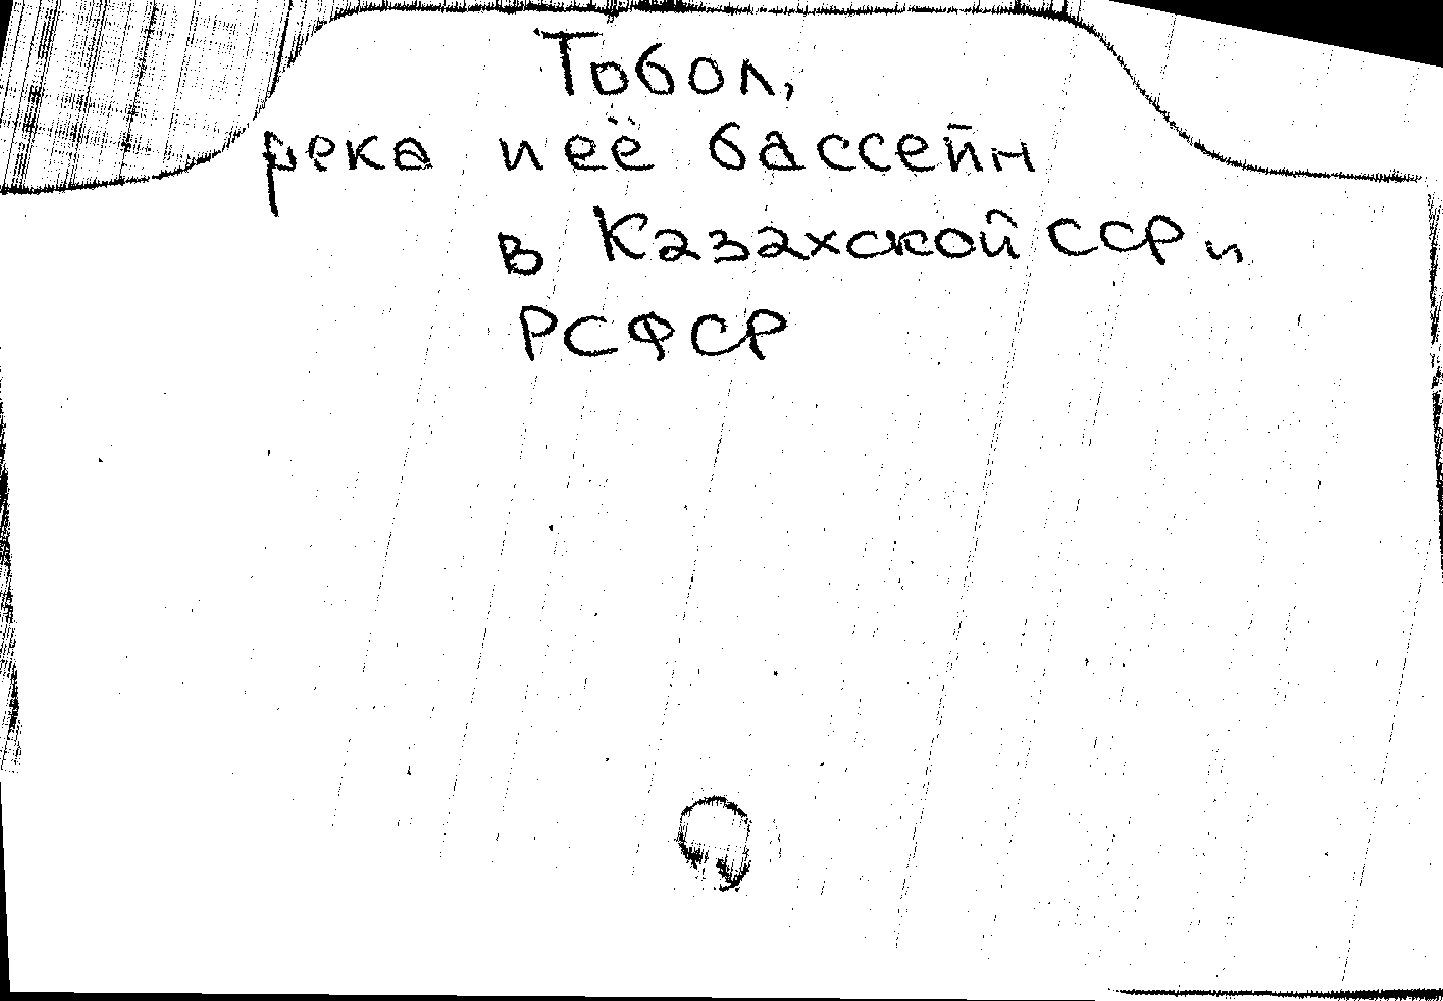 Тобол,
река и её бассейн
в Казахской ССР и
РСФСР